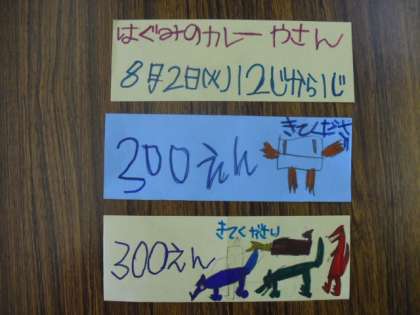 はぐみのカレーやさん
8月2日(火)12じから1じ
きてくださ
300えん
きてくださ
300えん